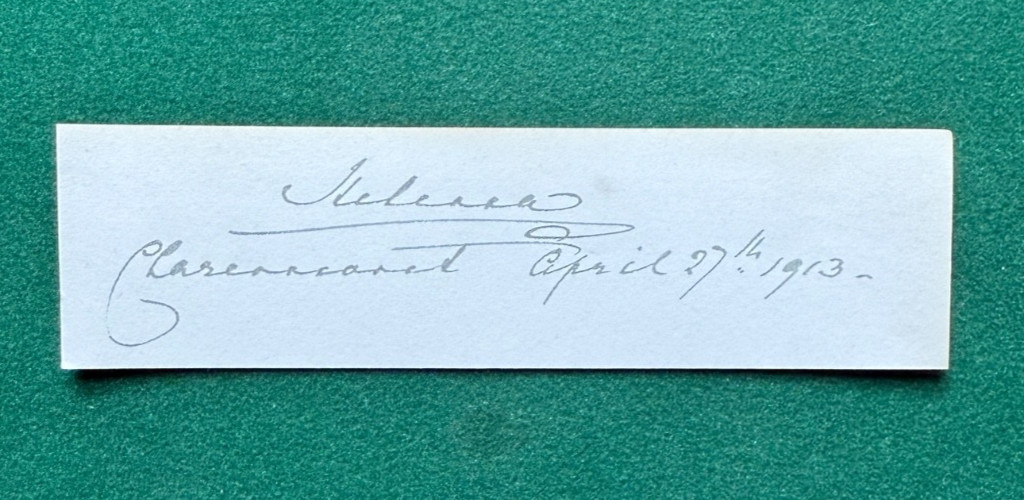 Helena
Claremont April 27th 1913 -